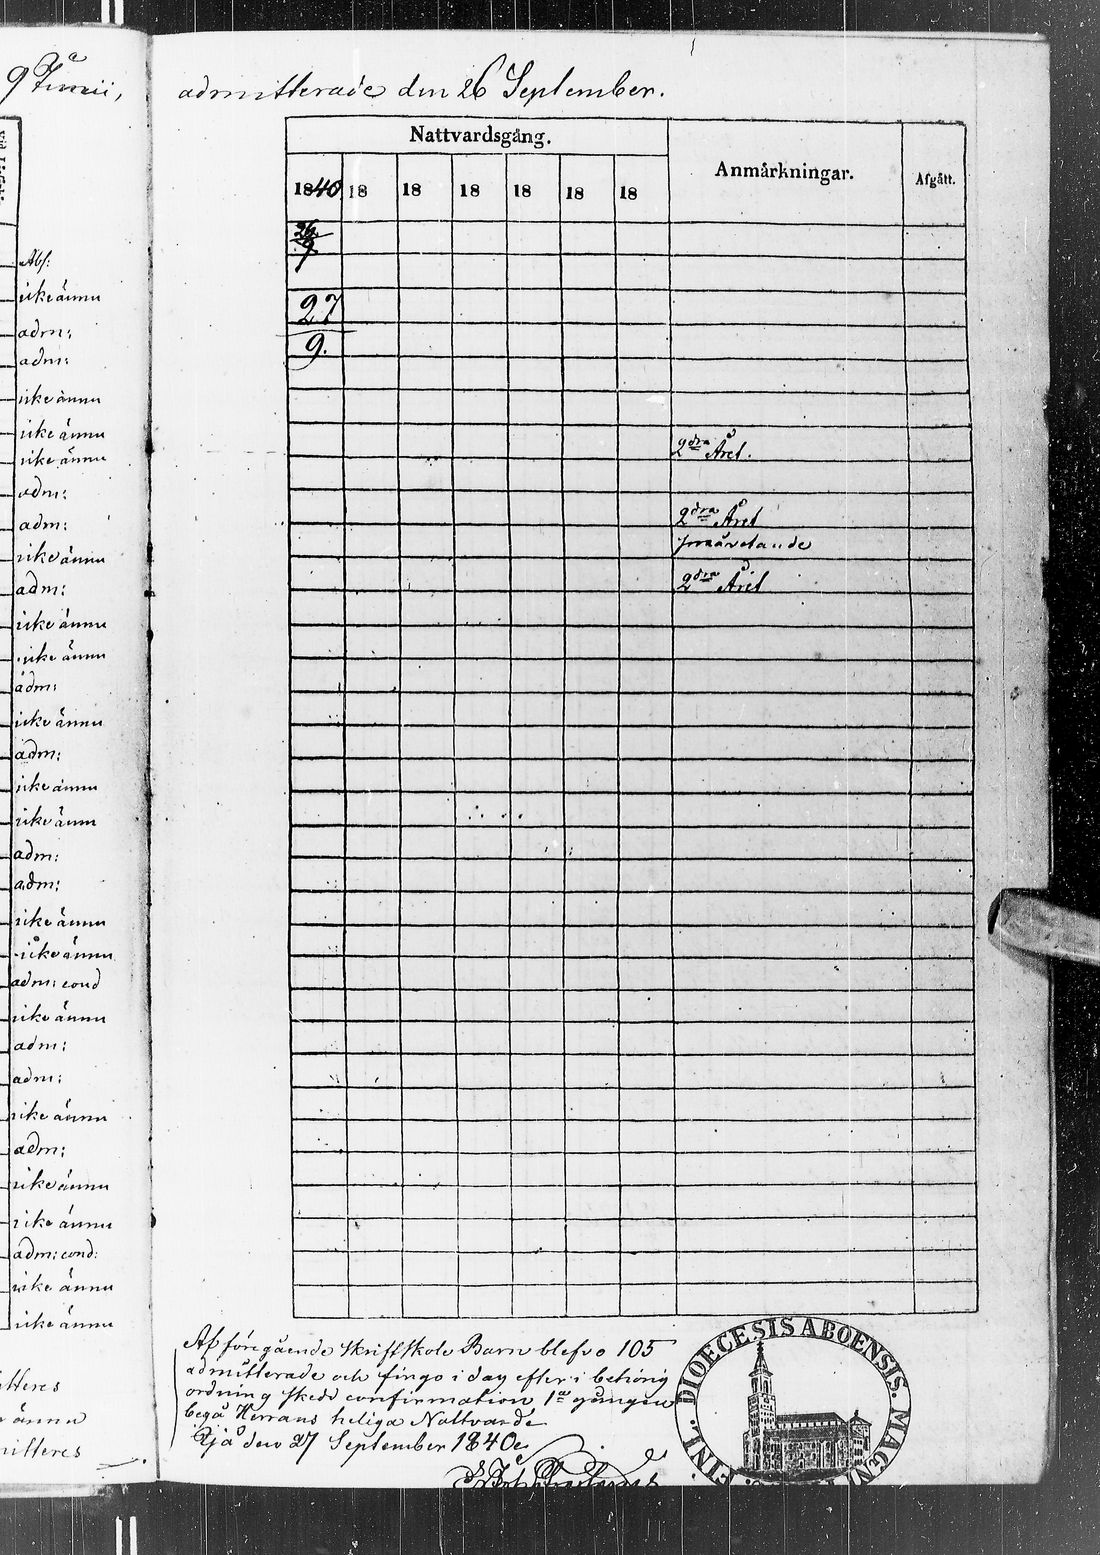 9 Junii,
Abs:
icke ännu
adm:
adm:
icke ännu
icke ännu
icke ännu
adm:
adm:
icke ännu
adm:
icke ännu
icke ännu
adm:
icke ännu
adm:
icke ännu
icke ännu
adm:
adm:
icke ännu
icke ännu
adm: cond
icke ännu
adm:
adm:
icke ännu
adm:
icke ännu
icke ännu
adm: cond:
icke ännu
icke ännu
admitterade den 26 September.
Nattvardsgång.
Anmärkningar.
Afgått.
1840 18 18 18 18 18 18
26
9
27
9.
2dra Året.
2dra Året
2dra Året
Af föregående Skriftskole Barn blefvo 105
admitterade och fingo i dag efter i behörig
ordning skedd confirmation 1sta gången
begå Herrans heliga Nattvard
den 27 September 1840
FINL. DIOECESIS ABOENSIS. MAGNI